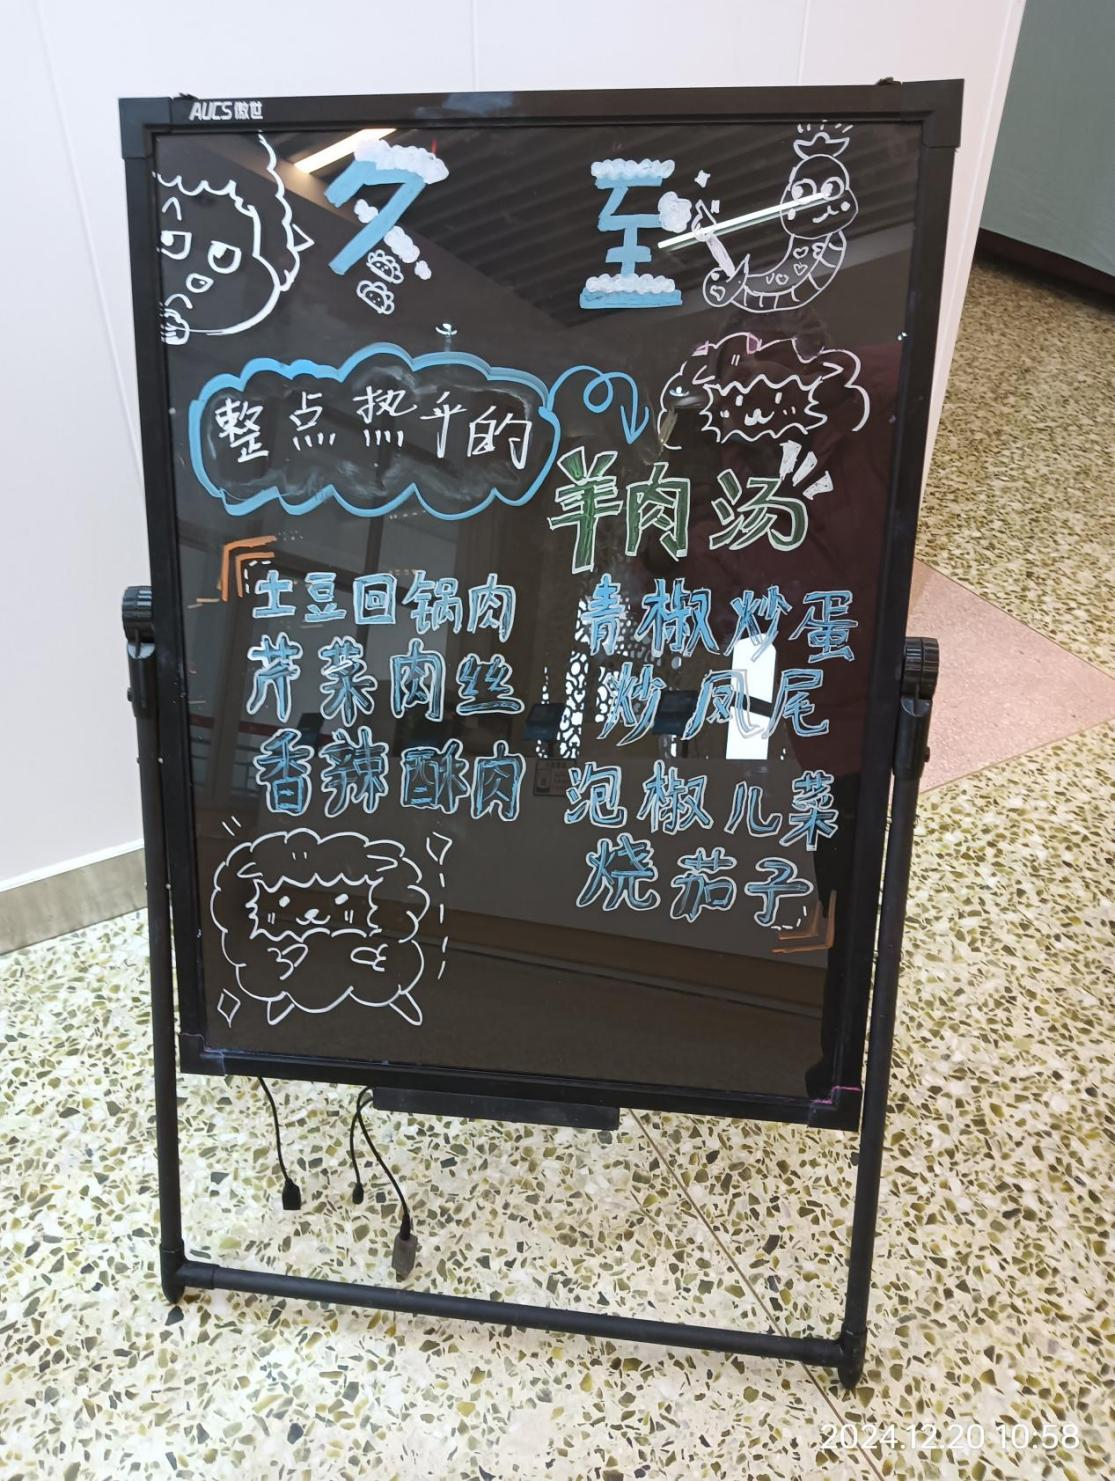 AUCS傲世
冬至
整点热乎的
羊肉汤
土豆回锅肉
芹菜肉丝
香辣酥肉
青椒炒蛋
炒凤尾
泡椒儿菜
烧茄子
2024.12.20 10:58